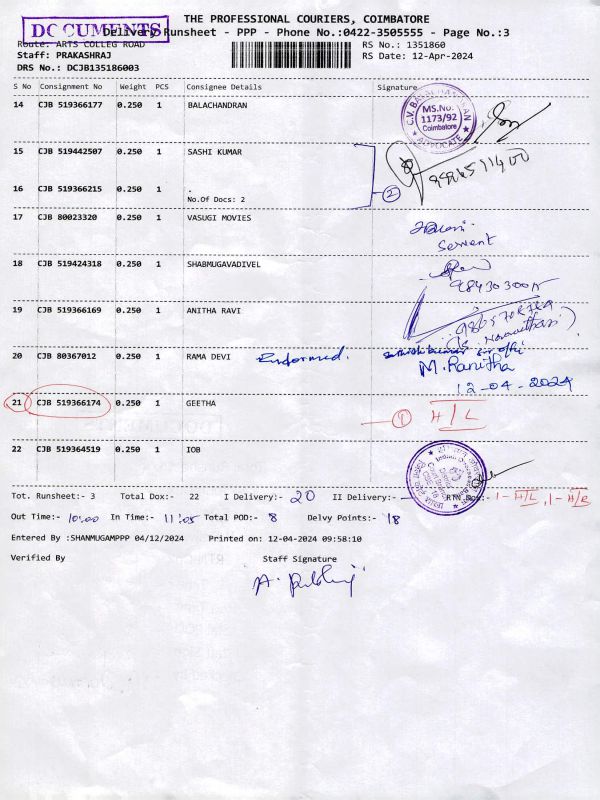 THE PROFESSIONAL COURIERS, COIMBATORE
DOCUMENTS
Delivery Runsheet - PPP - Phone No.:0422-3505555 - Page No.:3
Route: ARTS COLLEG ROAD
RS No.: 1351860
Staff: PRAKASHRAJ
RS Date: 12-Apr-2024
DRS No.: DCJB135186003
S No Consignment No Weight PCS Consignee Details Signature
14 CJB 519366177 0.250 1 BALACHANDRAN
MS.No:
1173/92
Coimbatore
ADVOCATE
15 CJB 519442507 0.250 1 SASHI KUMAR
16 CJB 519366215 0.250 1 .
No.Of Docs: 2
2
17 CJB 80023320 0.250 1 VASUGI MOVIES
Servent
18 CJB 519424318 0.250 1 SHABMUGAVADIVEL
19 CJB 519366169 0.250 1 ANITHA RAVI
20 CJB 80367012 0.250 1 RAMA DEVI
M. Ranitha
12-04-2024
21 CJB 519366174 0.250 1 GEETHA
1 H/L
22 CJB 519364519 0.250 1 IOB
Tot. Runsheet:- 3 Total Dox:- 22 I Delivery:- 20 II Delivery:- RTN Dox:- 1-H/L, 1-H/R
Out Time:- 10:00 In Time:- 11:05 Total POD:- 8 Delvy Points:- 18
Entered By :SHANMUGAMPPP 04/12/2024 Printed on: 12-04-2024 09:58:10
Verified By Staff Signature